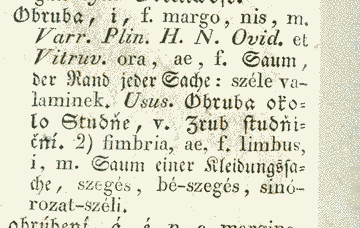 Obruba, i, f. margo, nis, m.
Varr. Plin. H. N. Ovid. et
Vitruv. ora, ae, f. Saum,
der Rand jeder Sache: széle va-
laminek. Usus. Obruba oko-
lo Studňe, v. Zrub studňi-
ční. 2) fimbria, ae, f. limbus,
i, m. Saum einer Kleidungssa-
che, szegés, bé-szegés, sinó-
rozat-széli.